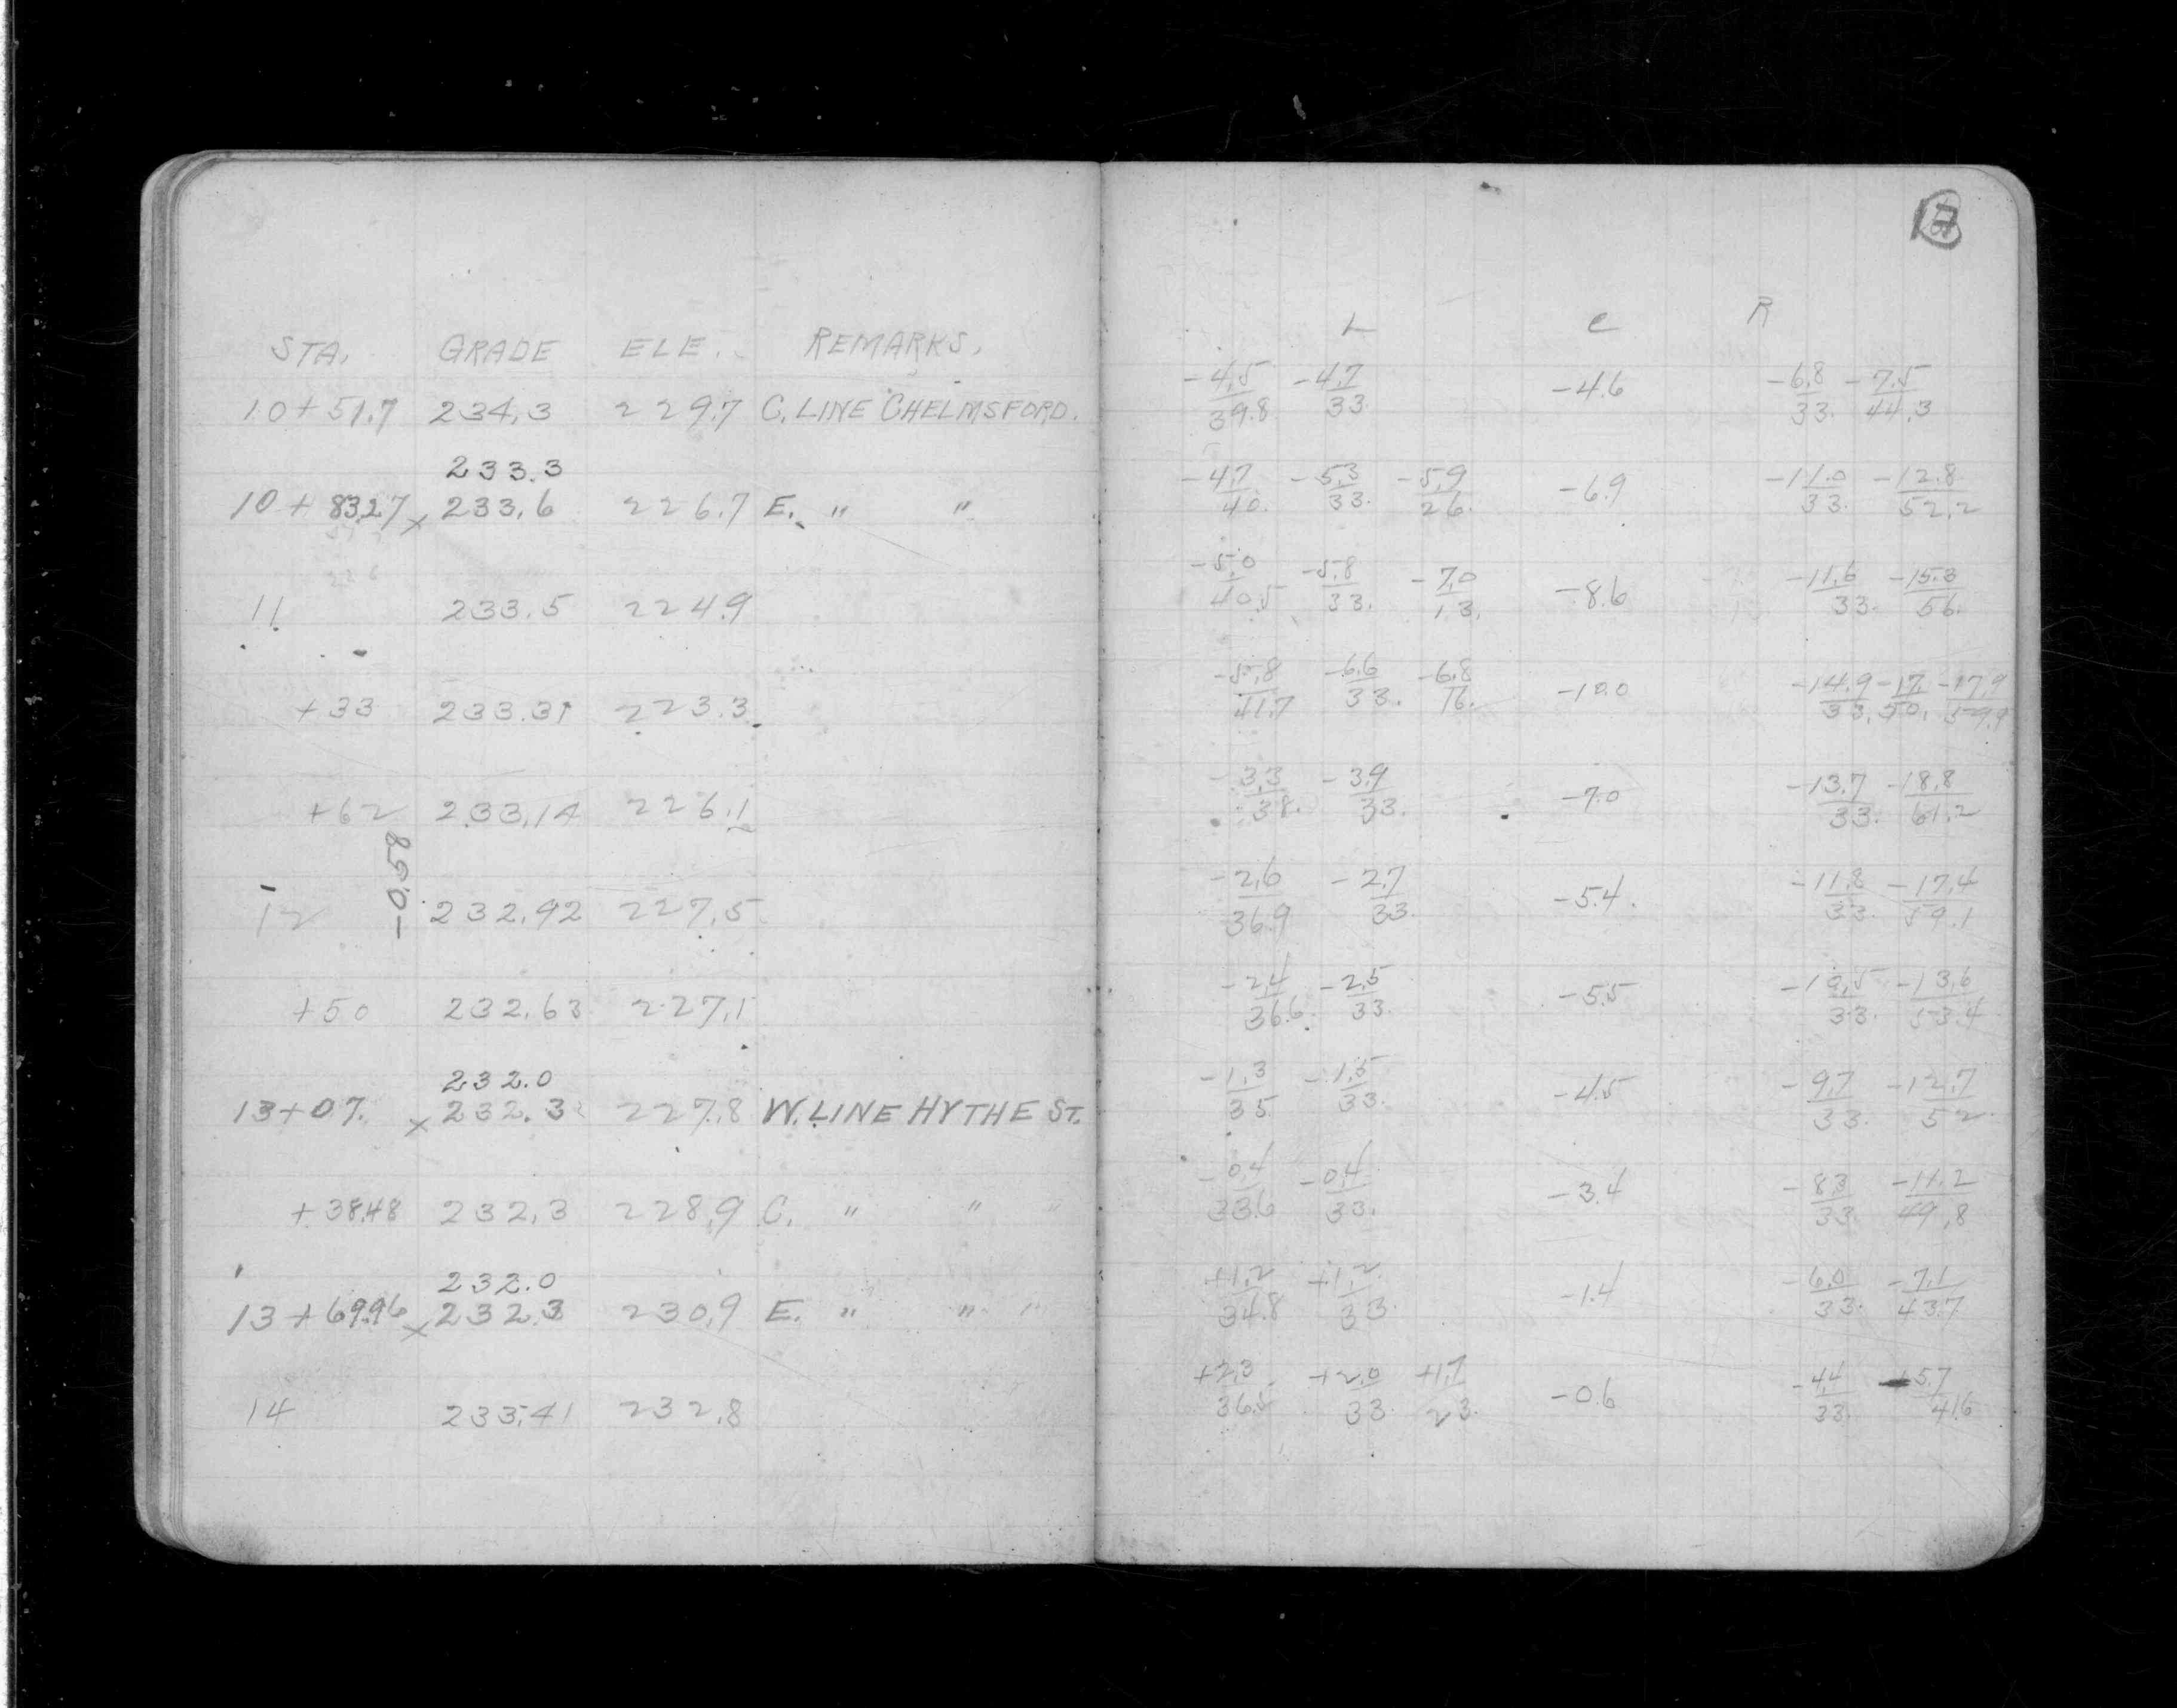 STA. GRADE ELE. REMARKS.
10+51.7 234.3 229.7 C. LINE CHELMSFORD.
233.3
10+83.27 x 233.6 226.7 E. " "
11 233.5 224.9
+33 233.31 223.3
+62 233.14 226.1
-0.58
12 232.92 227.5
+50 232.63 227.1
232.0
13+07. x 232.3 227.8 W. LINE HYTHE ST.
+38.48 232.3 228.9 C. " " "
232.0
13+69.96 x 232.3 230.9 E. " " "
14 233.41 232.8
L C R
-4.5 -4.7 -4.6 -6.8 -7.5
39.8 33. 33. 44.3
-4.7 -5.3 -5.9 -6.9 -11.0 -12.8
40. 33. 26. 33. 52.2
-5.0 -5.8 -7.0 -8.6 -11.6 -15.3
40.5 33. 13. 33. 56.
-5.8 -6.6 -6.8 -10.0 -14.9 -17. -17.9
41.7 33. 16. 33. 50. 59.9
-3.3 -3.9 -7.0 -13.7 -18.8
38. 33. 33. 61.2
-2.6 -2.7 -5.4. -11.8 -17.4
36.9 33. 33. 59.1
-2.4 -2.5 -5.5 -10.5 -13.6
36.6 33. 33. 53.4
-1.3 -1.5 -4.5 -9.7 -12.7
35 33. 33. 52
-0.4 -0.4 -3.4 -8.3 -11.2
33.6 33. 33. 49.8
+1.2 +1.2 -1.4 -6.0 -7.1
34.8 33. 33. 43.7
+2.3 +2.0 +1.7 -0.6 -4.4 -5.7
36.5 33 23. 33. 41.6